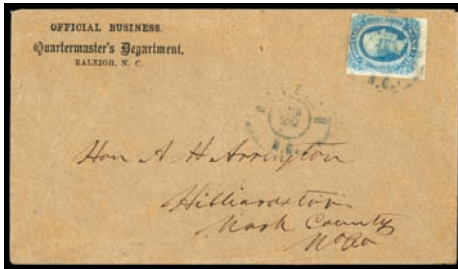 OFFICIAL BUSINESS.
Quartermaster's Department,
RALEIGH, N. C.
N.C.
20
N.C.
Hon A H Arrington
Hilliardston
Nash County
No Ca